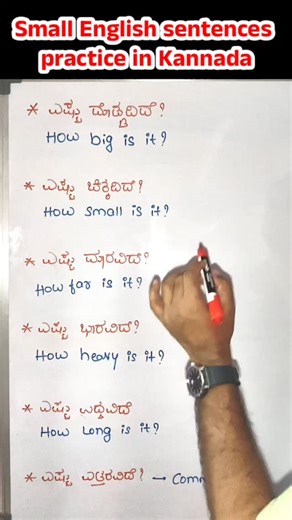 Small English sentences
practice in Kannada
* ಎಷ್ಟು ದೊಡ್ಡದಿದೆ?
How big is it?
* ಎಷ್ಟು ಚಿಕ್ಕದಿದೆ?
How small is it?
* ಎಷ್ಟು ದೂರವಿದೆ?
How far is it?
* ಎಷ್ಟು ಭಾರವಿದೆ?
How heavy is it?
* ಎಷ್ಟು ಉದ್ದವಿದೆ
How Long is it?
* ಎಷ್ಟು ಎತ್ತರವಿದೆ? → Comm